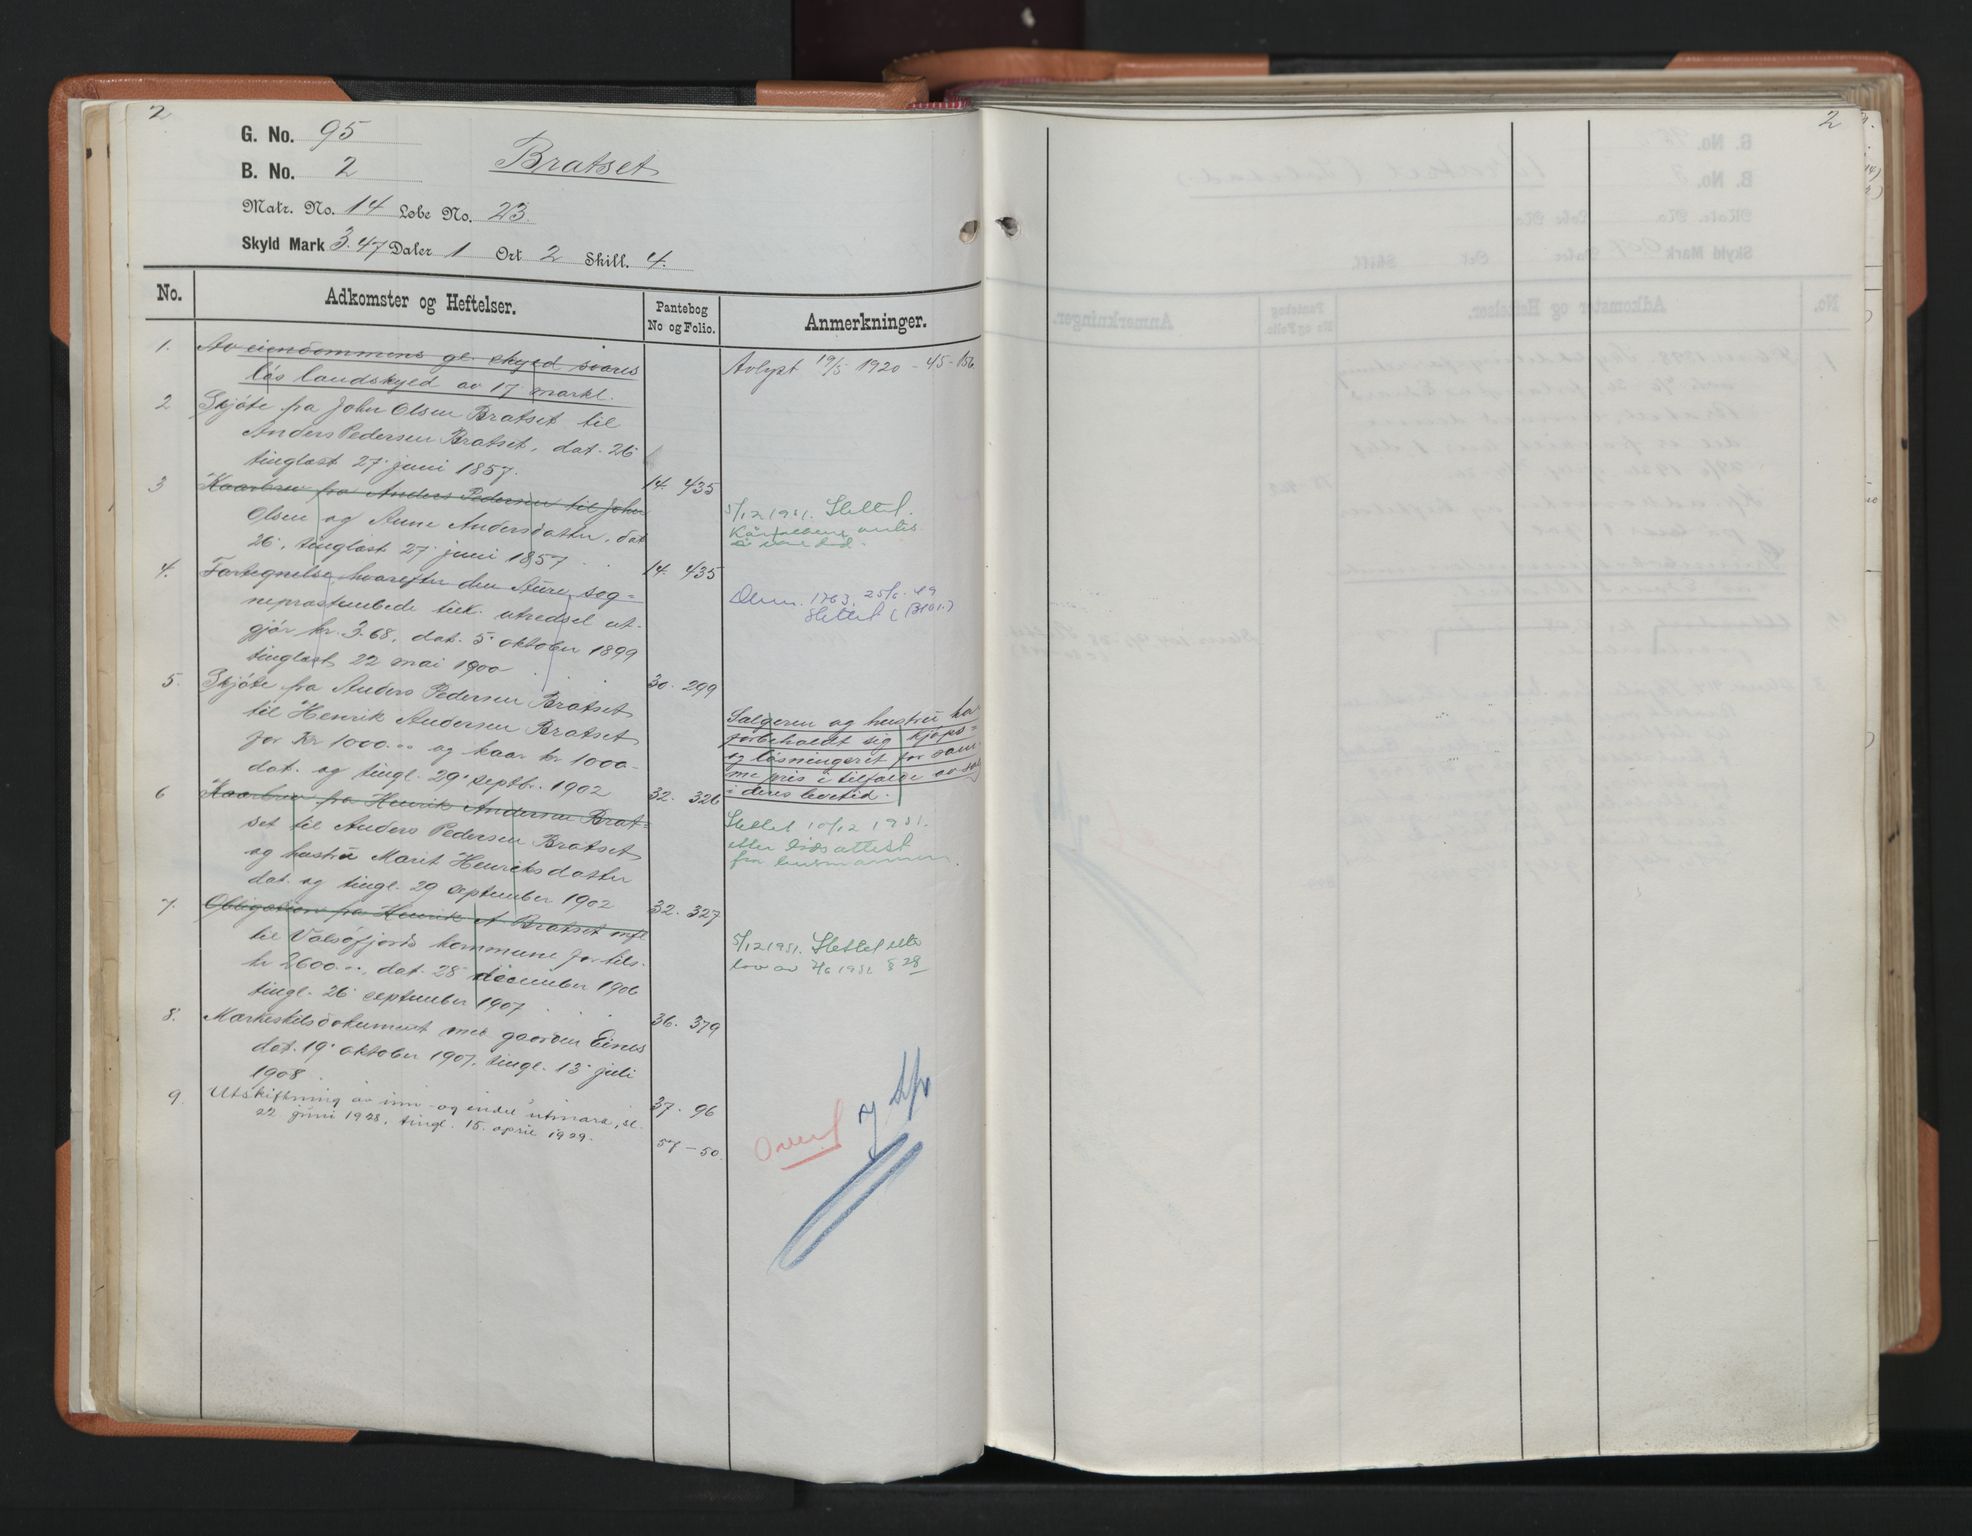 2
G. No. 95
B. No. 2
Bratset
Matr. No. 14 Løbe No. 23.
Skyld Mark 3.47 Daler 1 Ort 2 Skill. 4.
No.
Adkomster og Heftelser.
Pantebog
No og Folio.
Anmerkninger.
1. Av eiendommens gl. skyld svares
løs landskyld av 17 markl.
Avlyst 19/5 1920 - 45 - 156.
2 Skjøte fra John Olsen Bratset til
Anders Pedersen Bratset, dat. 26
tinglæst 27. juni 1857.
14. 435
3 Kaarbrev fra Anders Pedersen til John
Olsen og Anne Andersdatter, dat
26, tinglæst 27. juni 1857
14. 435
5/12 1951. Slettet.
4. Fortegnelse hvorefter den Aure sog=
nepræstembede tilk. utredsel ut-
gjør kr. 3.68, dat. 5. oktober 1899
tinglæst 22 mai 1900
30. 299
1763, 25/6 - 49
Slettet
5. Skjøte fra Anders Pedersen Bratset
til Henrik Andersen Bratset
for Kr 1000.00 og kaar kr 1000
dat. og tingl. 29. septbr. 1902
32. 326
Sælgeren og hustru har
forbeholdt sig kjøps=
og løsningsret for sam-
me pris i tilfælde av salg
i deres levetid.
6 Kaarbrev fra Henrik Andersen Brat-
set til Anders Pedersen Bratset
og hustru Marit Henriksdatter
dat. og tingl. 29 september 1902
32. 327
Slettet 10/12 1951.
etter
attest
fra lensmannen.
7. Obligation fra Henrik A. Bratset
til Valsøfjords kommune for tils.
kr 2600.00, dat. 28 december 1906
tingl. 26 september 1907
36. 379
5/12 1951. Slettet
lov av 1951 § 28
8. Merkeskilsdokument med gaarden Eines
dat. 19. oktober 1907, tingl. 13. juli
1908
37. 96
9. Utskiftning av inn- og endel utmark, sl.
22. juni 1928, tingl. 15. april 1929.
57 - 50.
Overf
2